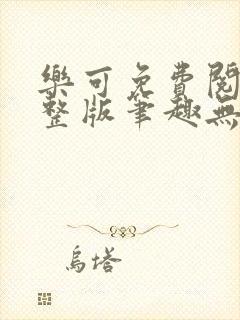 樂可免費閱
整版筆趣無
烏塔